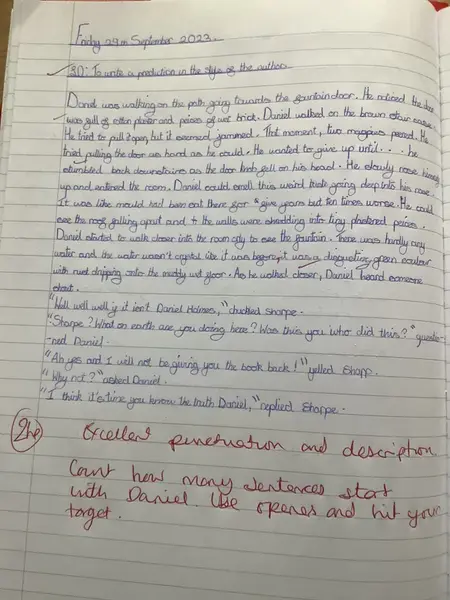 Friday 29th September 2023.
LO: To write a prediction in the style of the author.
Daniel was walking on the path going towards the fountain door. He noticed the door
was full of rotten plaster and peices of wet brick. Daniel walked on the brown stair case.
He tried to pull it open, but it seemed jammed. That moment, two magpies passed. He
tried pulling the door as hard as he could. He wanted to give up until... he
stumbled back downstairs as the door knob fell on his head. He slowly rose himself
up and entered the room. Daniel could smell this weird stink going deep into his nose.
It was like mould had been left there for five years but ten times worse. He could
see the roof falling apart and the walls were shredding into tiny shattered peices.
Daniel started to walk closer into the room only to see the fountain. There was hardly any
water and the water wasn't crystal like it was before, it was a disgusting green colour
with rust dripping onto the muddy wet floor. As he walked closer, Daniel heard someone
shout.
"Well well well if it isn't Daniel Holmes," chuckled sharpe.
"Sharpe? What on earth are you doing here? Was this you who did this?" questio-
ned Daniel.
"Ah yes and I will not be giving you the book back!" yelled Sharpe.
"Why not?" asked Daniel.
"I think it's time you know the truth Daniel," replied Sharpe.
2hp
Excellent punctuation and description
Count how many sentences start
with Daniel. Use openers and hit your
target.